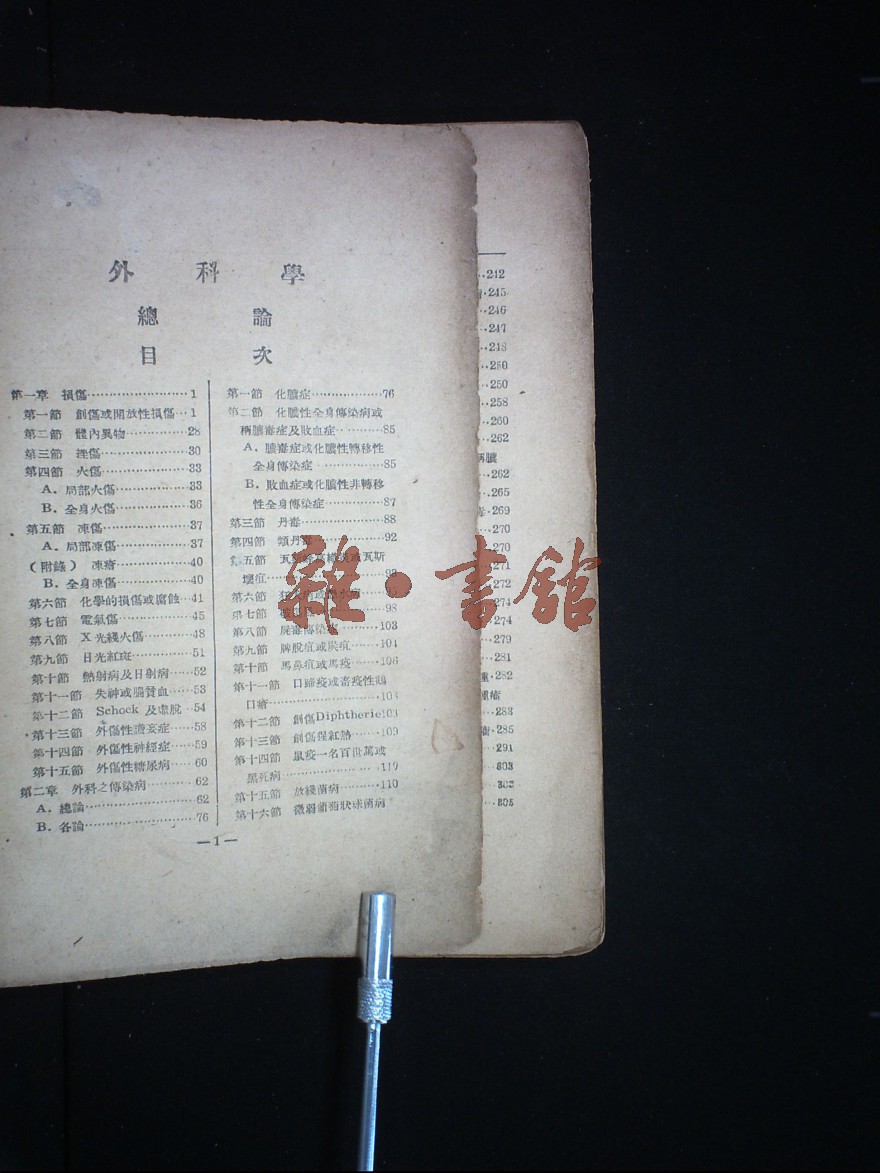 外科學
總論
目次
第一章 損傷…………………1
第一節 創傷或開放性損傷…1
第二節 體內異物……………28
第三節 挫傷…………………30
第四節 火傷…………………33
A．局部火傷………………33
B．全身火傷………………36
第五節 凍傷…………………37
A．局部凍傷………………37
(附錄) 凍瘡………………40
B．全身凍傷………………40
第六節 化學的損傷或腐蝕…41
第七節 電氣傷………………45
第八節 X光綫火傷…………48
第九節 日光紅斑……………51
第十節 熱射病及日射病……52
第十一節 失神或腦貧血……53
第十二節 Schock 及虛脫…54
第十三節 外傷性譫妄症……58
第十四節 外傷性神經症……59
第十五節 外傷性糖尿病……60
第二章 外科之傳染病………62
A．總論……………………62
B．各論……………………76
第一節 化膿症………………76
第二節 化膿性全身傳染病或
膿毒症及敗血症………85
A．膿毒症或化膿性轉移性
全身傳染症……………85
B．敗血症或化膿性非轉移
性全身傳染症…………87
第三節 丹毒…………………88
第四節 類丹毒………………92
第五節 瓦斯
壞疽
第六節
第七節 98
第八節 屍毒傳染症………103
第九節 脾脫疽或炭疽……104
第十節 馬鼻疽或馬疫……106
第十一節 口蹄疫或畜疫性鵝
口瘡
第十二節 創傷Diphtherie103
第十三節 創傷猩紅熱……109
第十四節 鼠疫一名百世篤或
黑死病…………………110
第十五節 放綫菌病………110
第十六節 微弱葡萄狀球菌病
—1—
242
245
246
247
248
250
250
258
260
262
262
265
269
270
270
271
272
274
274
279
281
282
283
285
291
303
305
雜·書館